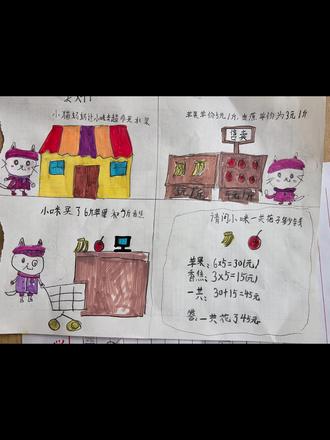 小猫妈妈让小咪去超市买水果
苹果单价5元1斤，香蕉单价为3元1斤
售卖
小咪买了6斤苹果和5斤香蕉
请问小咪一共花了多少钱
苹果：6×5=30(元)
香焦：3×5=15(元)
一共：30+15=45元
答：一共花了45元